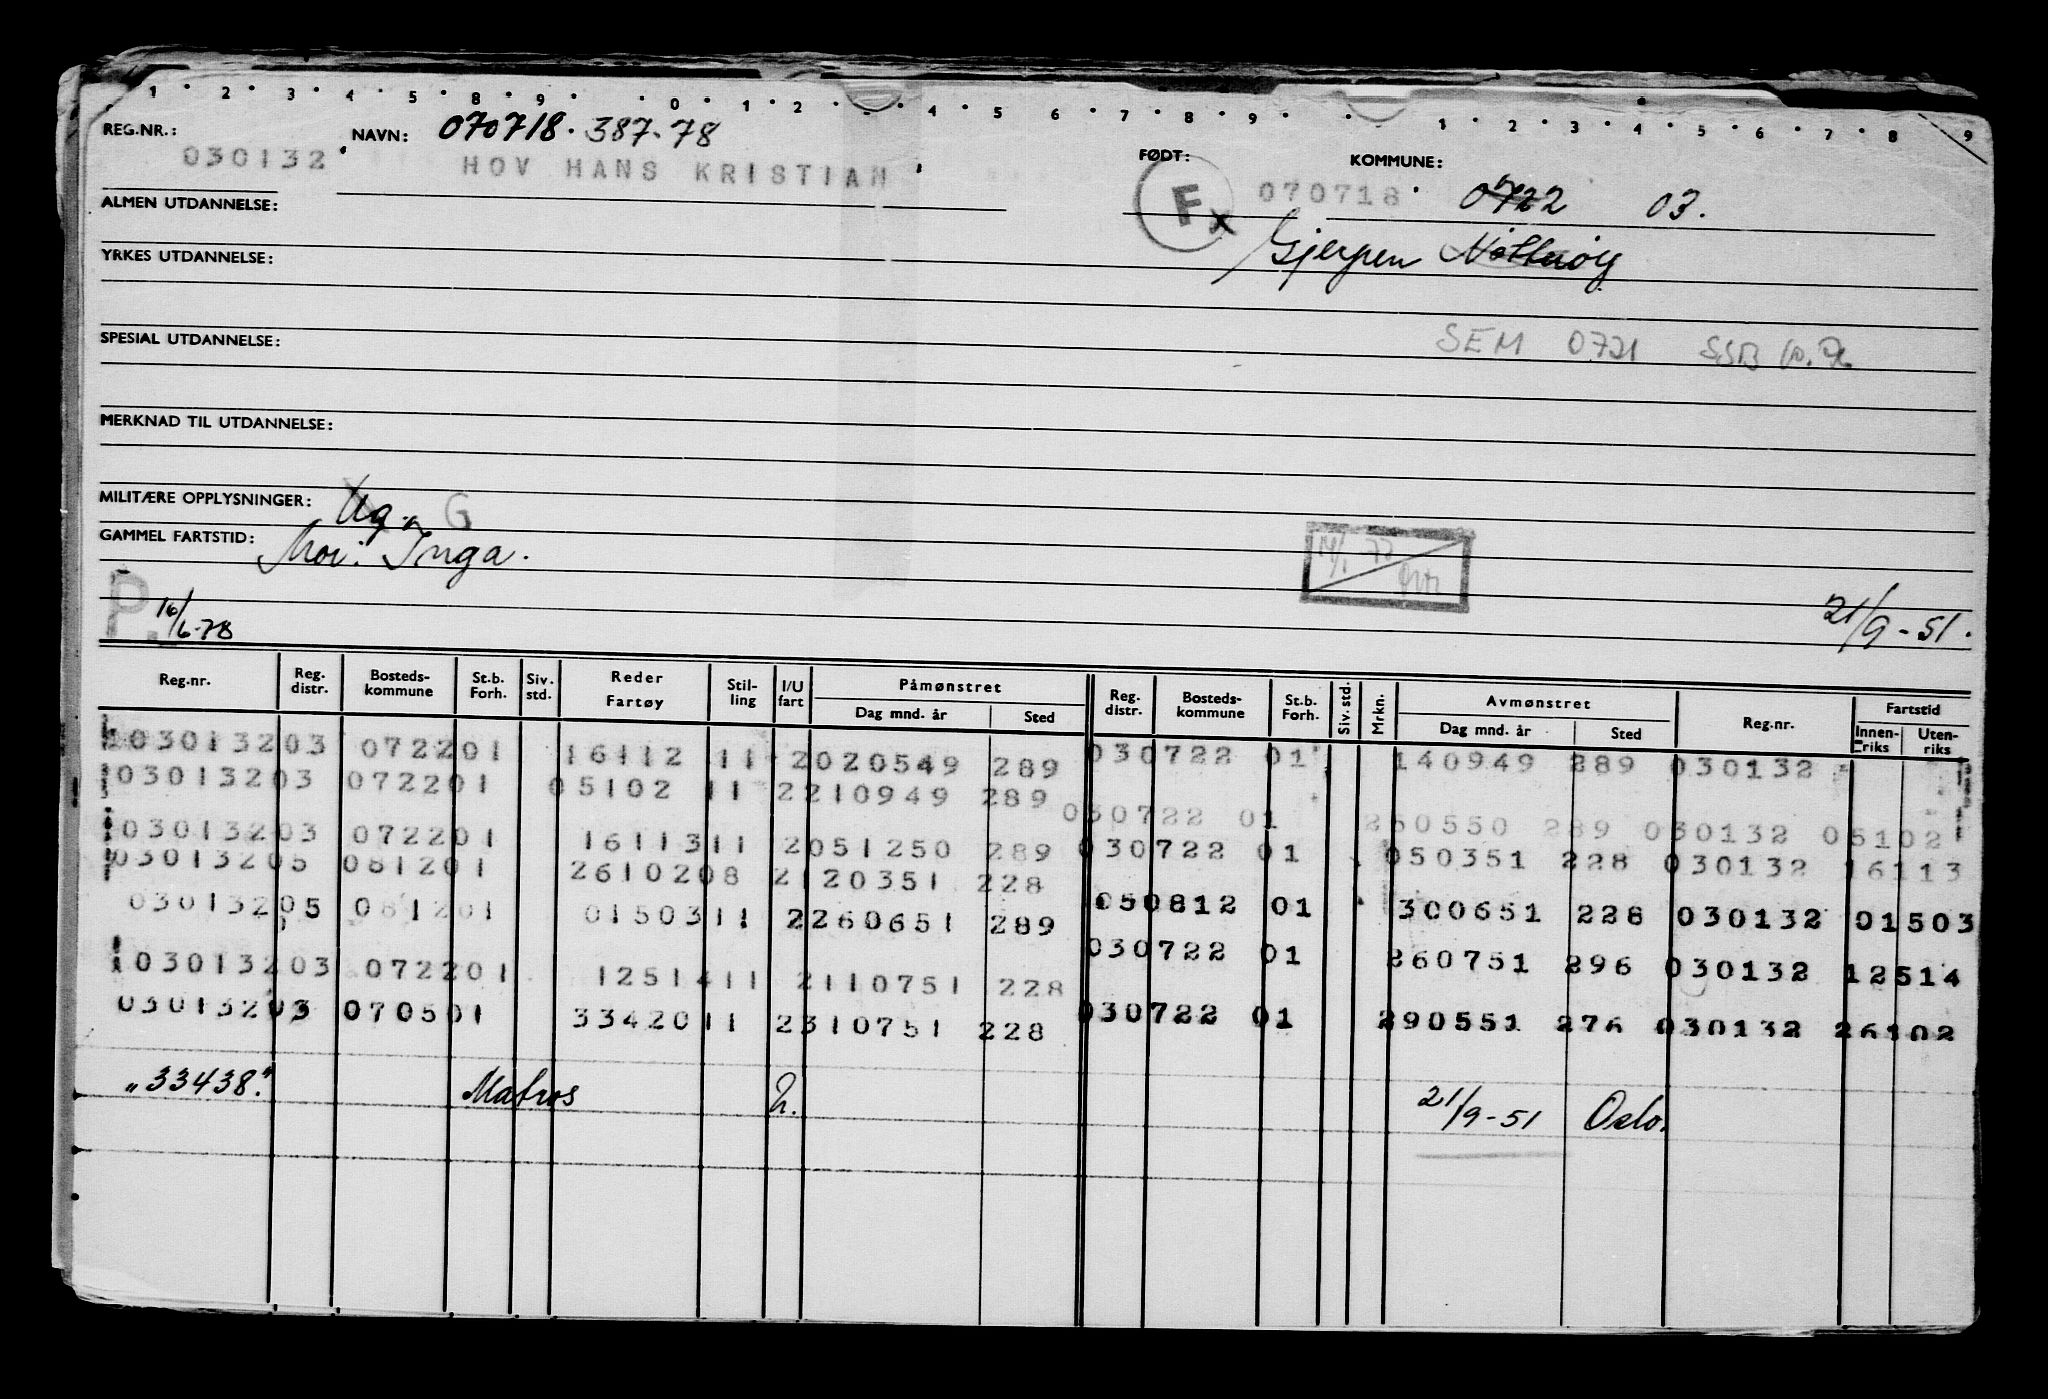 1 2 3 4 5 8 9 0 1 2 4 5 6 7 8 9 1 2 3 4 5 6 7 8 9
REG.NR.: NAVN: 070718. 387-78 FØDT: KOMMUNE:
030132 HOV HANS KRISTIAN F x 070718 0722 03.
ALMEN UTDANNELSE:
Gjerpen Nøtterøy
YRKES UTDANNELSE:
SPESIAL UTDANNELSE: SEM 0721 SSB
MERKNAD TIL UTDANNELSE:
MILITÆRE OPPLYSNINGER: Ug. G
GAMMEL FARTSTID: Mor: Inga.
P. 16/6-78 21/9-51.
Reg.nr. Reg. distr. Bosteds-kommune St.b. Forh. Siv. std. Reder Fartøy Stil-ling I/U fart Påmønstret Dag mnd. år Sted Reg. distr. Bosteds-kommune St.b. Forh. Siv. std. Mrkn. Avmønstret Dag mnd. år Sted Reg.nr. Fartstid Innen-riks Uten-riks
030132 03 0722 01 16112 11 2 020549 289 03 0722 01 140949 289 030132
030132 03 0722 01 05102 11 2 210949 289 03 0722 01 260550 289 030132 05102
030132 03 0722 01 16113 11 2 051250 289 03 0722 01 050351 228 030132 16113
030132 05 0812 01 26102 08 2 120351 228
030132 05 0812 01 01503 11 2 260651 289 05 0812 01 300651 228 030132 01503
030132 03 0722 01 12514 11 2 110751 228 03 0722 01 260751 296 030132 12514
030132 03 0705 01 33420 11 2 310751 228 03 0722 01 290551 276 030132 26102
"33438." Matros 2. 21/9-51 Oslo.